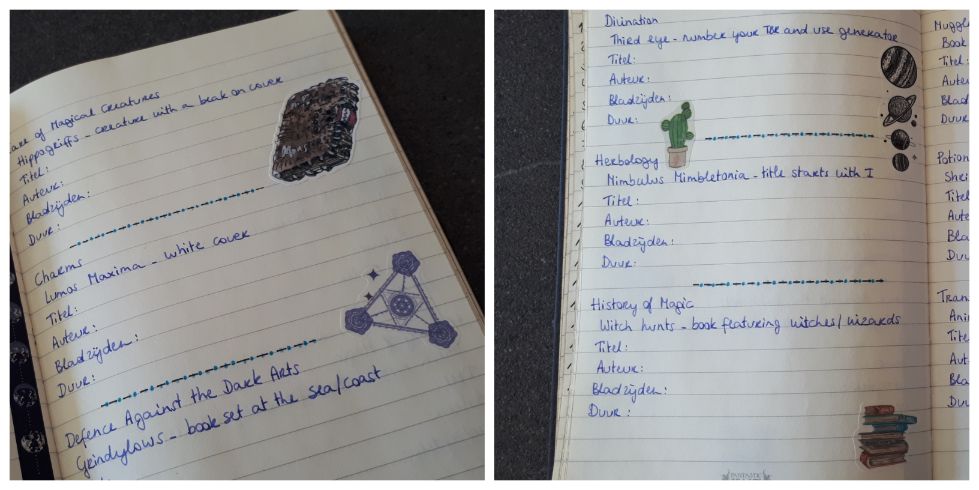 are of Magical Creatures
Hippogriffs - creature with a beak on cover
Titel:
Auteur:
Bladzijden:
Duur:
Charms
Lumos Maxima - white cover
Titel:
Auteur:
Bladzijden:
Duur:
Defence Against the Dark Arts
Grindylows - book set at the sea/coast
Divination
Third eye - number your TBR and use generator
Titel:
Auteur:
Bladzijden:
Duur:
Herbology
Mimbulus Mimbletonia - title starts with I
Titel:
Auteur:
Bladzijden:
Duur:
History of Magic
Witch hunts - book featuring witches/wizards
Titel:
Auteur:
Bladzijden:
Duur:
Muggl
Book
Titel:
Aute
Blad
Duu
Potion
Titel
Aute
Bla
Duu
Tran
Ani
Tite
Aut
Bla
Du
FANTASTIC